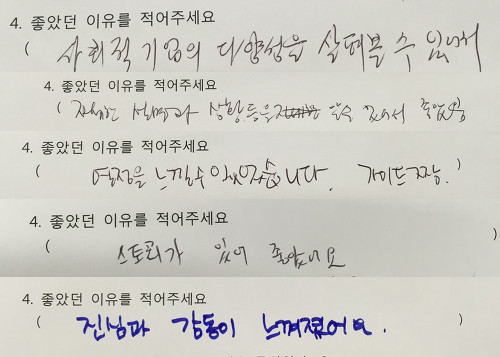 4. 좋았던 이유를 적어주세요
( 사회적 기업의 다양성을 살펴볼 수 있어서
4. 좋았던 이유를 적어주세요
( 자세한 설명과 상황등을 알수 있어서 좋았음
4. 좋았던 이유를 적어주세요
( 열정을 느낄수 있었습니다. 가이드짱. )
4. 좋았던 이유를 적어주세요
( 스토리가 있어 좋았어요 )
4. 좋았던 이유를 적어주세요
( 진심과 감동이 느껴졌어요. )